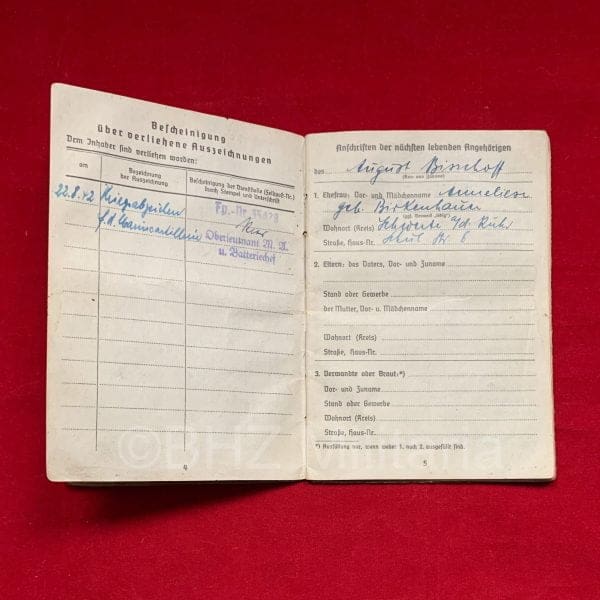 Bescheinigung
über verliehene Auszeichnungen
Dem Inhaber sind verliehen worden:
am
Bezeichnung
der Auszeichnung
Bescheinigung der Dienststelle (Feldpost-Nr.)
durch Stempel und Unterschrift
22.8.42 Kriegsabzeichen
f. d. Marineartillerie
Fp.-Nr.
Oberleutnant M. A.
u. Batteriechef
4
Anschriften der nächsten lebenden Angehörigen
des August Bischoff
(Vor- und Zuname)
1. Ehefrau: Vor- und Mädchenname Anneliese
geb. Birkenhauer
Wohnort (Kreis) Schwerte a/d. Ruhr
Straße, Haus-Nr.
2. Eltern: des Vaters, Vor- und Zuname
Stand oder Gewerbe
der Mutter, Vor- u. Mädchenname
Wohnort (Kreis)
Straße, Haus-Nr.
3. Verwandte oder Braut:*)
Vor- und Zuname
Stand oder Gewerbe
Wohnort (Kreis)
Straße, Haus-Nr.
*) Ausfüllung nur, wenn weder 1. noch 2. ausgefüllt sind.
5
©BHZ Militaria